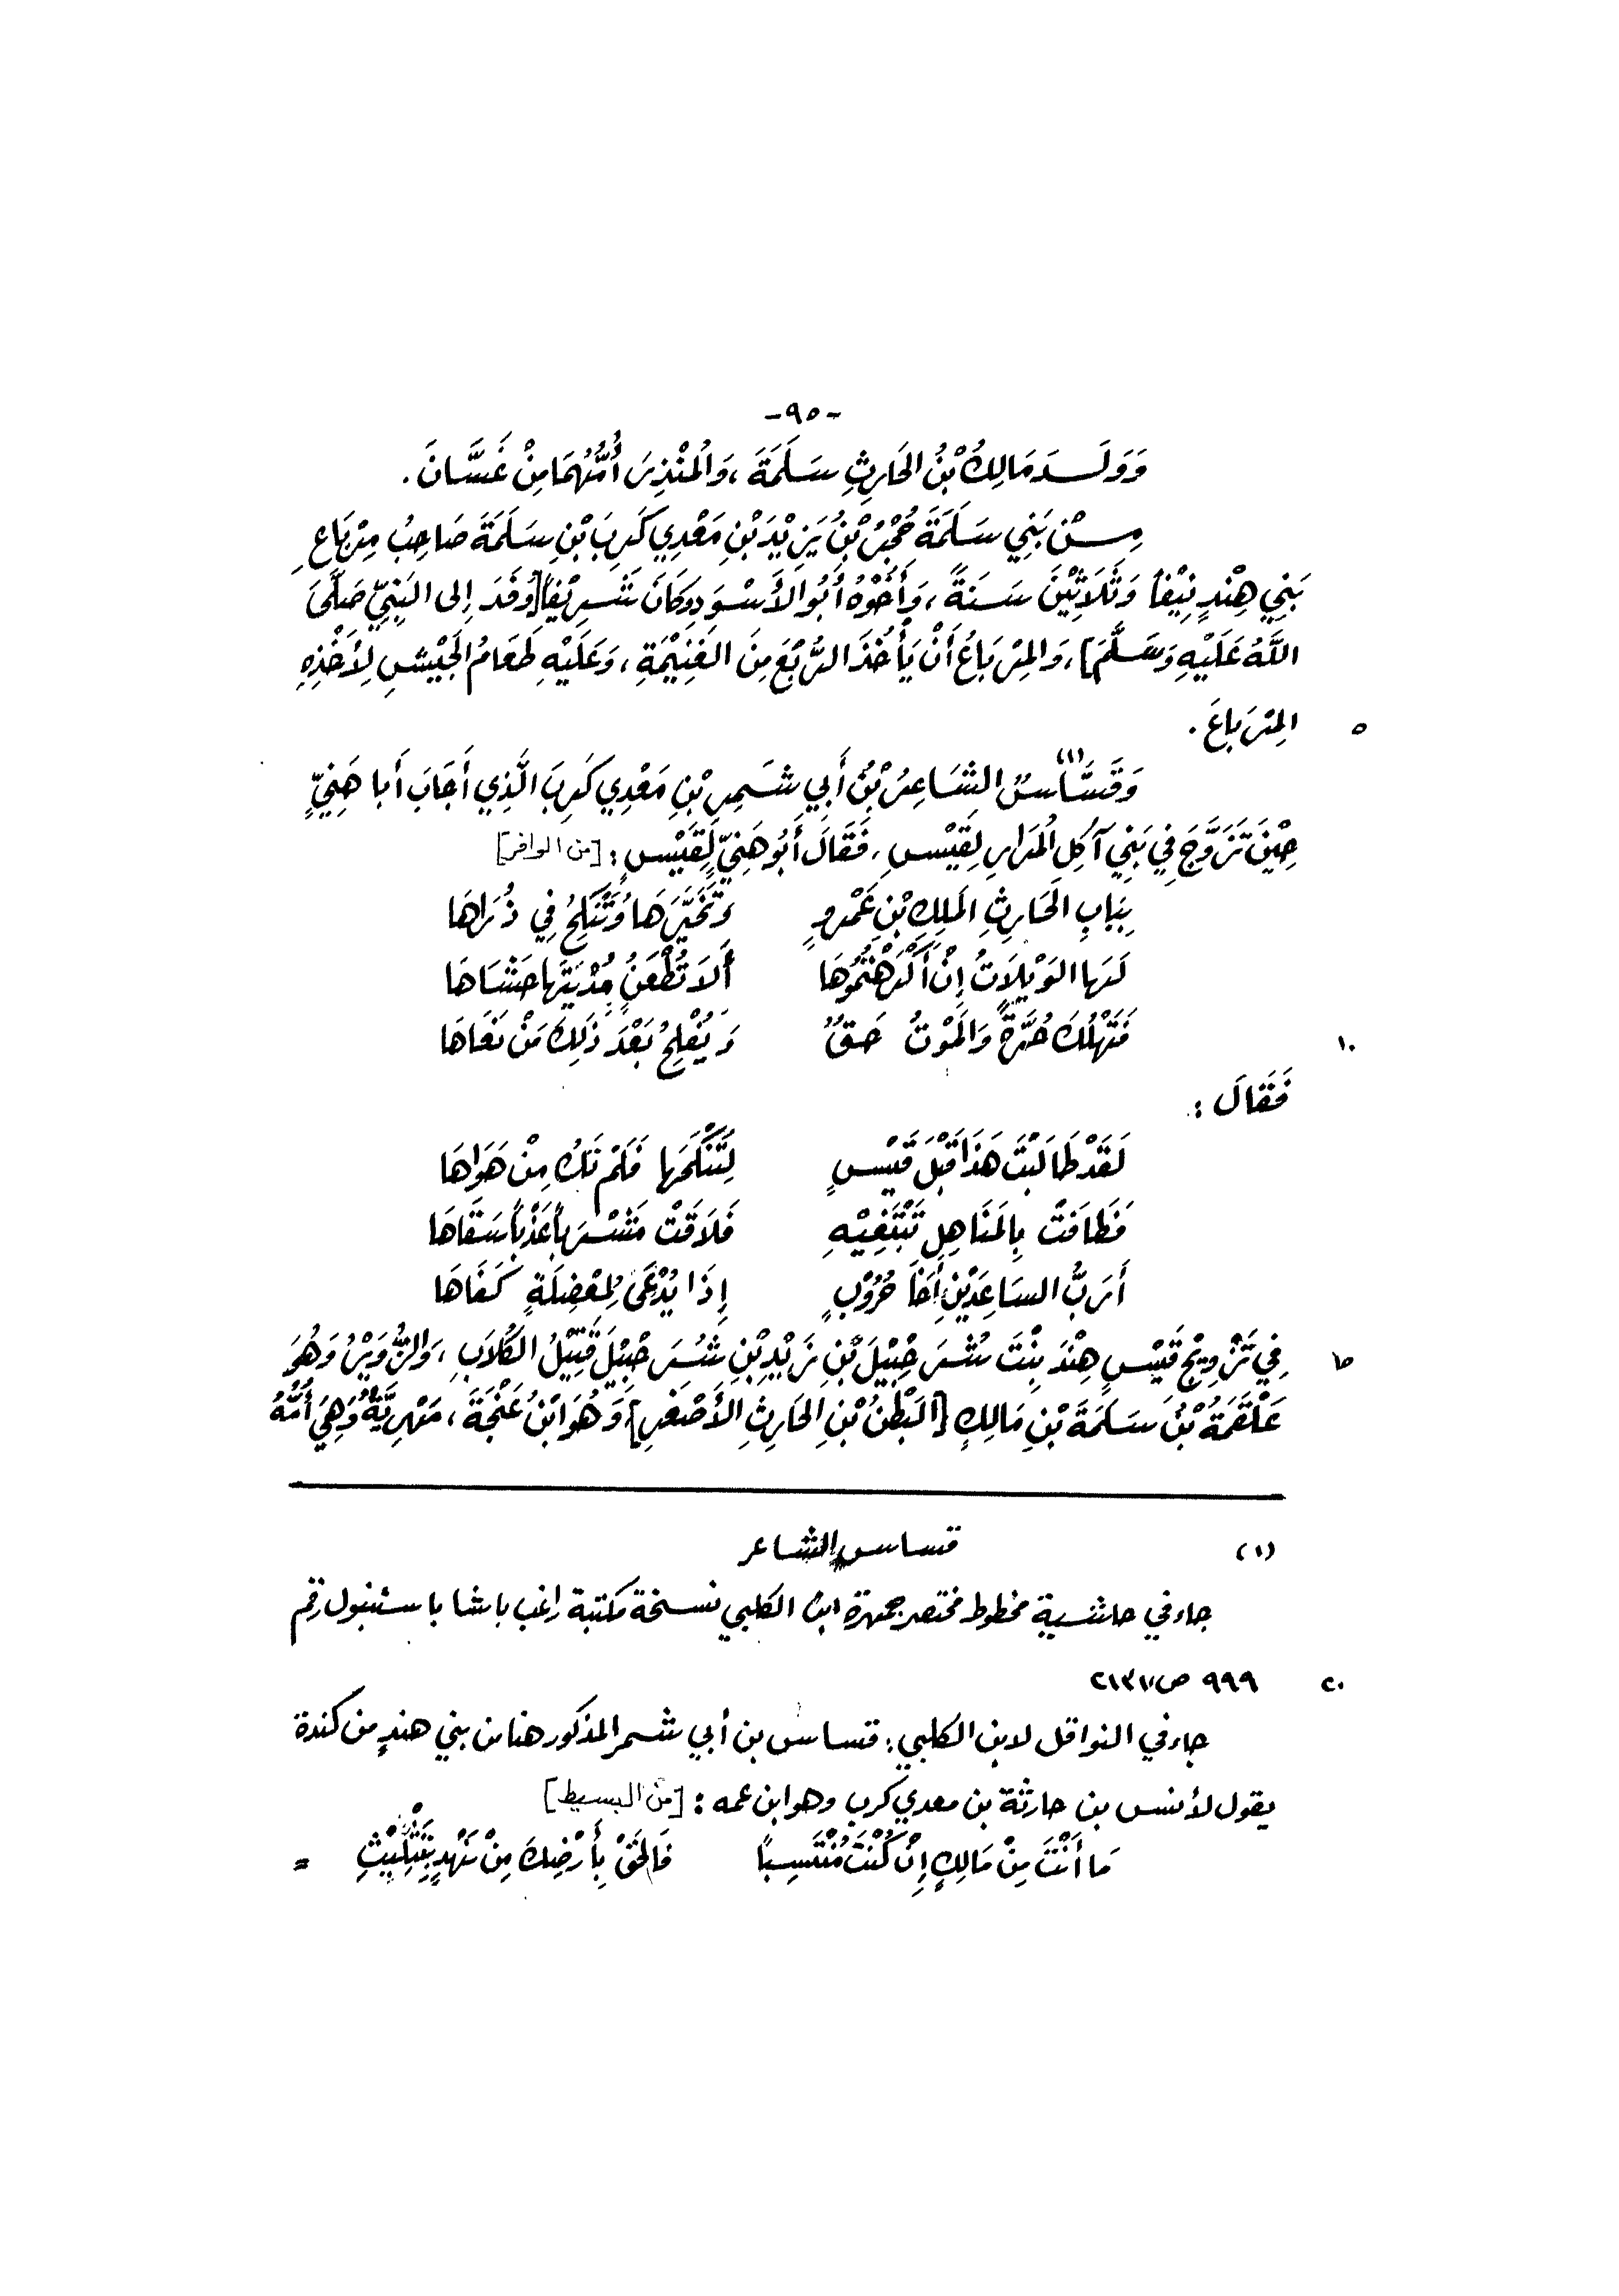 -٩٥-
وَوَلَدَ مَالِكُ بْنُ الحَارِثِ سَلَمَةَ، وَالمُنْذِرَ أُمُّهُمَا مِنْ غَسَّانَ.
مِنْ بَنِي سَلَمَةَ حُجْرُ بْنُ يَزِيْدَ بْنِ مَعْدِي كَرِبَ بْنِ سَلَمَةَ صَاحِبُ مِرْبَاعِ
بَنِي هِنْدٍ نِيْفاً وَثَلَاثِيْنَ سَنَةً، وَأَخُوْهُ أَبُو الأَسْوَدِ وَكَانَ شَرِيْفاً [وَفَدَ إلى النَّبِيِّ صَلَّىَ
اللَّهُ عَلَيْهِ وَسَلَّمَ]، وَالمِرْبَاعُ أَنْ يَأْخُذَ الرُّبْعَ مِنَ الغَنِيْمَةِ، وَعَلَيْهِ طَعَامُ الجَيْشِ لِأَخْذِهِ
المِرْبَاعَ. ٥
وَقَسَّاسُ (١) الشَّاعِرُ بْنُ أَبِي شَمِرِ بْنِ مَعْدِي كَرِبَ الَّذِي أَجَابَ أَبا هَنِيٍّ
حِيْنَ تَزَوَّجَ فِي بَنِي آكُلِ المُرَارِ لِقَيْسٍ، فَقَالَ أَبُو هَنِيٍّ لِقَيْسٍ: [من الوافر]
بِبَابِ الحَارِثِ المَلِكِ بْنِ عَمْروٍ وَتَخَيَّرَهَا وَتَنْكِحُ فِي ذُرَاهَا
لَهَا الوَيْلَاتُ إِنْ أَنْكَرْهْتُمُوهَا أَلَا تُطْعَنُ بِمُدْيَتِهَا حَشَاهَا
فَتَهْلُكَ حُرَّةً وَالمَوْتُ حَقٌّ وَيُفْلِحُ بَعْدَ ذَلِكَ مَنْ نَعَاهَا ١٠
فَقَالَ:
لَقَدْ طَالَبْتَ هَذَا قَبْلَ قَيْسٍ لِتَنْكَحَهَا فَلَمْ تَكُ مِنْ هَوَاهَا
فَطَافَتْ بِالمَنَاهِلِ تَبْتَغِيْهِ فَلَاقَتْ مَشْرَباً عَذْباً سَقَاهَا
أَرَبُّ السَاعِدَيْنِ أَخَا حُرُوْبٍ إِذَا يُدْعَى لِمُعْضِلَةٍ كَفَاهَا
فِي تَزْوِيْجِ قَيْسٍ هِنْدَ بِنْتَ شُرَحْبِيْلَ بْنِ زَيْدِ بْنِ شُرَحْبِيْلَ قَتِيْلُ الكُلَابِ، وَالزُّوَيْرُ وَهُوَ ١٥
عَلْقَمَةُ بْنُ سَلَمَةَ بْنِ مَالِكٍ [البَطْنُ بْنِ الحَارِثِ الأَصْغَرِ] وَهُوَ ابْنُ عَنْجَةَ، مَهْرِيَّةٌ وَهِيَ أُمُّهُ
(١) قساس الشاعر
جاء في حاشية مخطوط مختصر جمهرة ابن الكلبي نسخة مكتبة راغب باشا باستنبول رقم
٩٩٩ ص/٢١٣ ٢٠
جاء في النواقل لابن الكلبي: قساس بن أبي شمر المذكور هنا من بني هندٍ من كندة
يقول لأنس بن حارثة بن معدي كرب وهو ابن عمه: [من البسيط]
مَا أَنْتَ مِنْ مَالِكٍ إِنْ كُنْتَ مُنْتَسِبًا فَالحَقْ بِأَرْضِكَ مِنْ نَهْدٍ بِتَثْلِيْثِ =